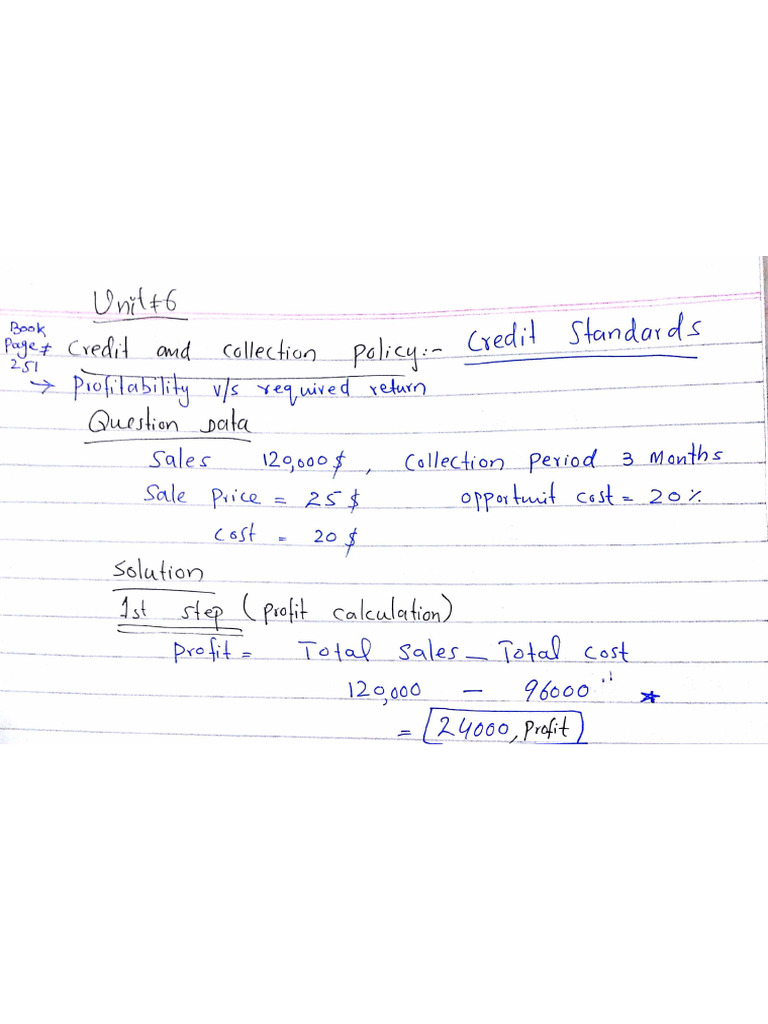 Unit#6
Book Page# 251
Credit and collection policy:- Credit Standards
→ Profitability v/s required return
Question Data
Sales 120,000$, Collection Period 3 Months
Sale Price = 25$ opportunit cost = 20%
Cost = 20$
Solution
1st step (profit calculation)
Profit = Total Sales - Total cost
120,000 - 96000 *
= 24000, Profit